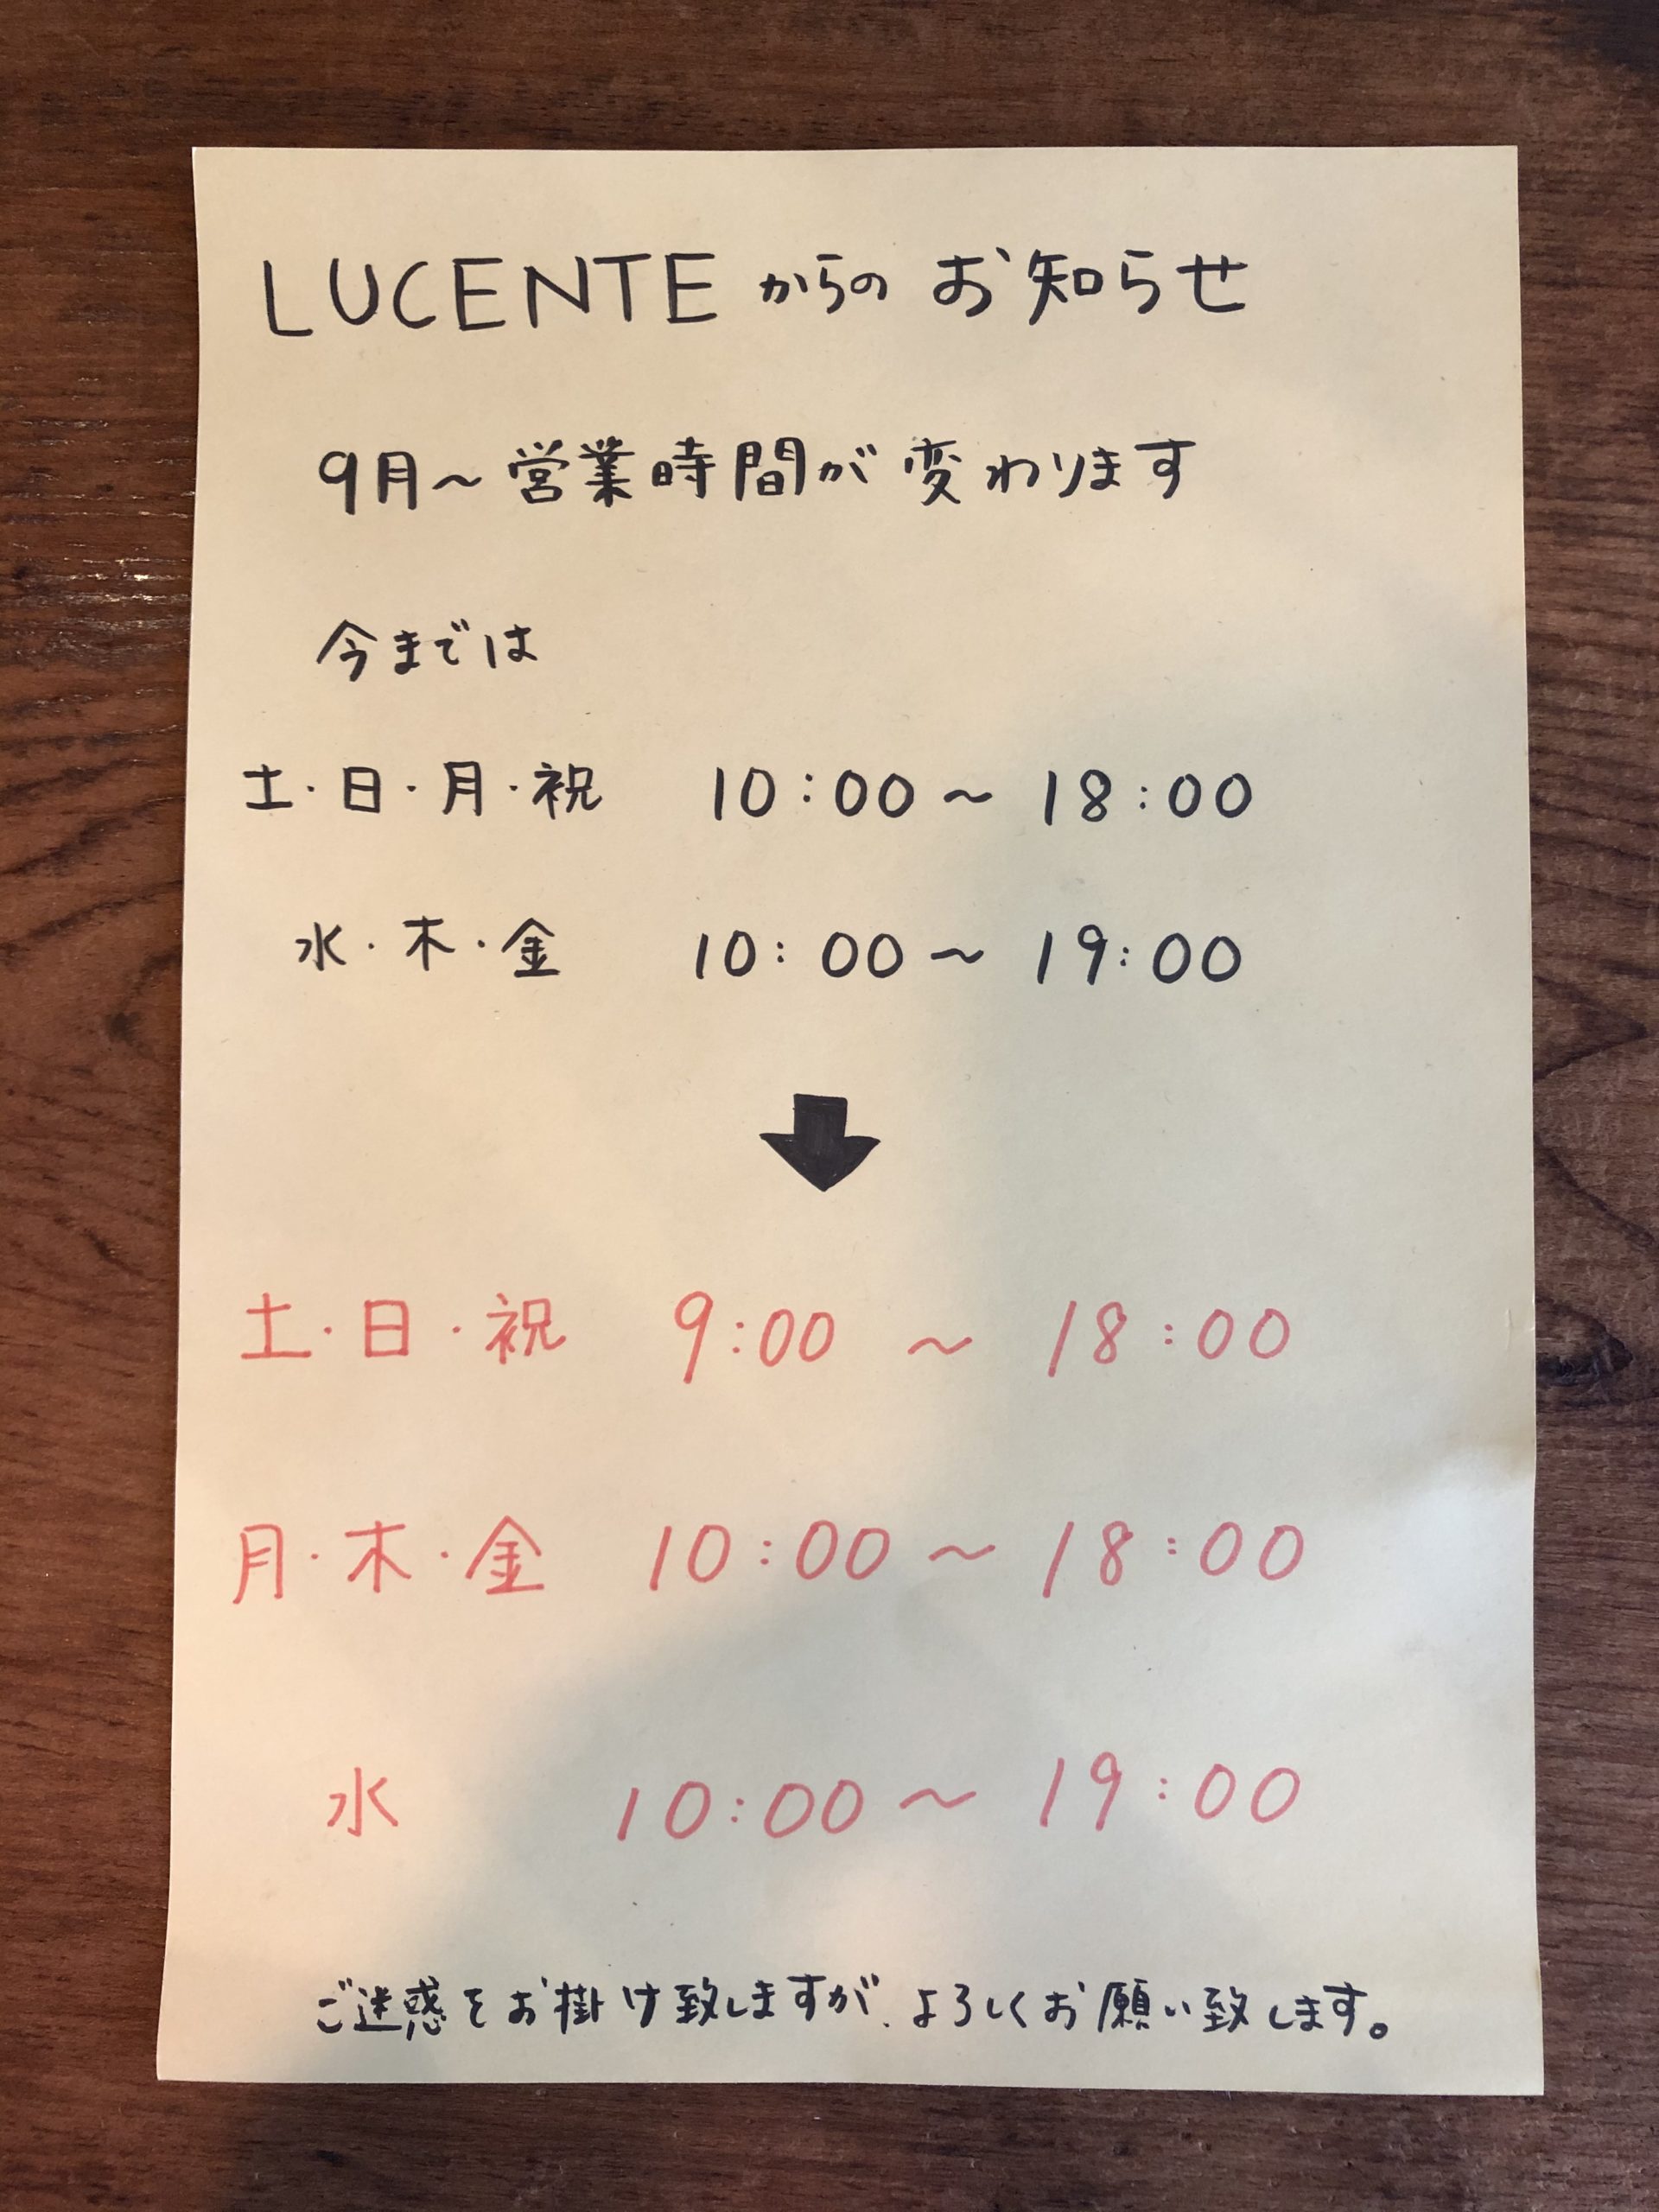 LUCENTEからのお知らせ
9月～営業時間が変わります
今までは
土・日・月・祝 10:00～18:00
水・木・金 10:00～19:00
土・日・祝 9:00～18:00
月・木・金 10:00～18:00
水 10:00～19:00
ご迷惑をお掛け致しますが、よろしくお願い致します。